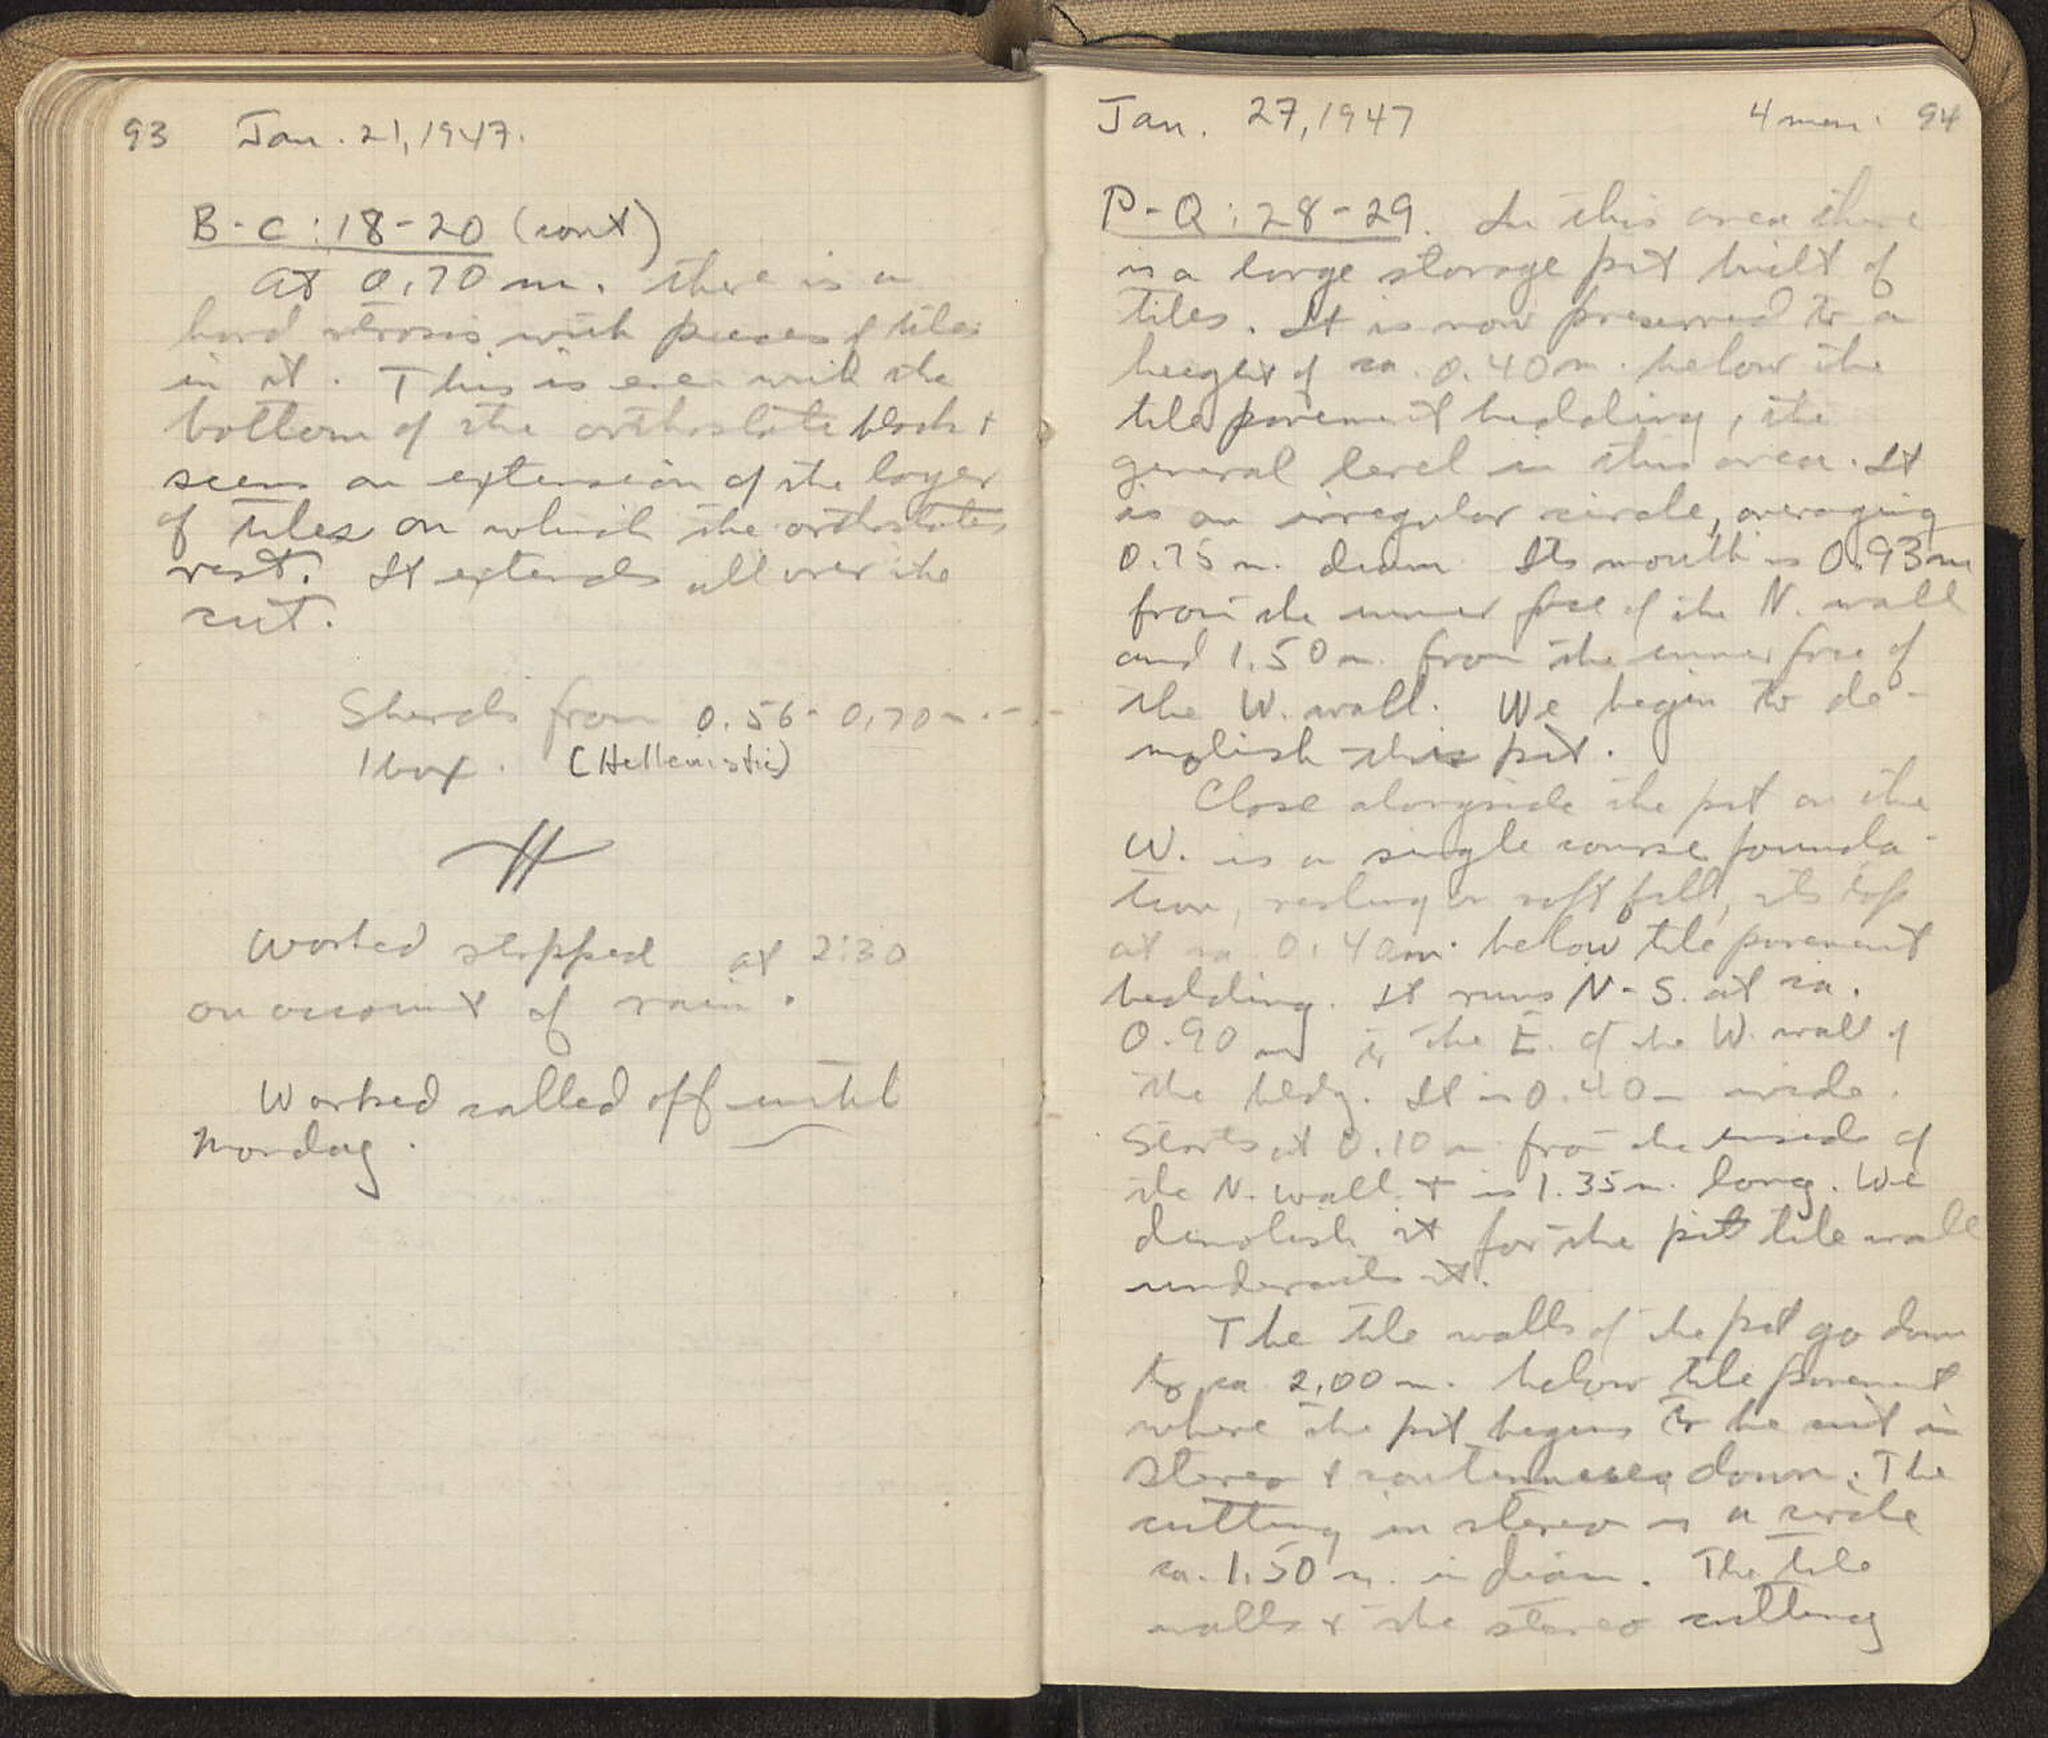 93 Jan. 21, 1947.
B-C: 18-20 (cont)
At 0.70 m. there is a
hard strosis with pieces of tiles
in it. This is even with the
bottom of the orthostate block +
seems an extension of the layer
of tiles on which the orthostates
rest. It extends all over the
cut.
Sherds from 0.56-0.70 m. --
1 box. (Hellenistic)
Worked stopped at 2:30
on account of rain.
Worked called off until
Monday.
Jan. 27, 1947 4 men. 94
P-Q: 28-29. In this area there
is a large storage pit built of
tiles. It is now preserved to a
height of ca. 0.40 m. below the
tile pavement bedding, the
general level in this area. It
is an irregular circle, averaging
0.75 m. diam. Its mouth is 0.93 m
from the inner face of the N. wall
and 1.50 m. from the inner face of
the W. wall. We begin to de-
molish this pit.
Close alongside the pit on the
W. is a single course founda-
tion, resting on soft fill, its top
at ca. 0.40 m. below tile pavement
bedding. It runs N-S. at ca.
0.90 m to the E. of the W. wall of
the bldg. It is 0.40 m wide.
Starts at 0.10 m from the inside of
the N. wall + is 1.35 m. long. We
demolish it for the pit tile wall
undercuts it.
The tile walls of the pit go down
to ca 2.00 m. below tile pavement
where the pit begins to be cut in
stereo + continues down. The
cutting in stereo is a circle
ca. 1.50 m. in diam. The tile
walls + the stereo cutting